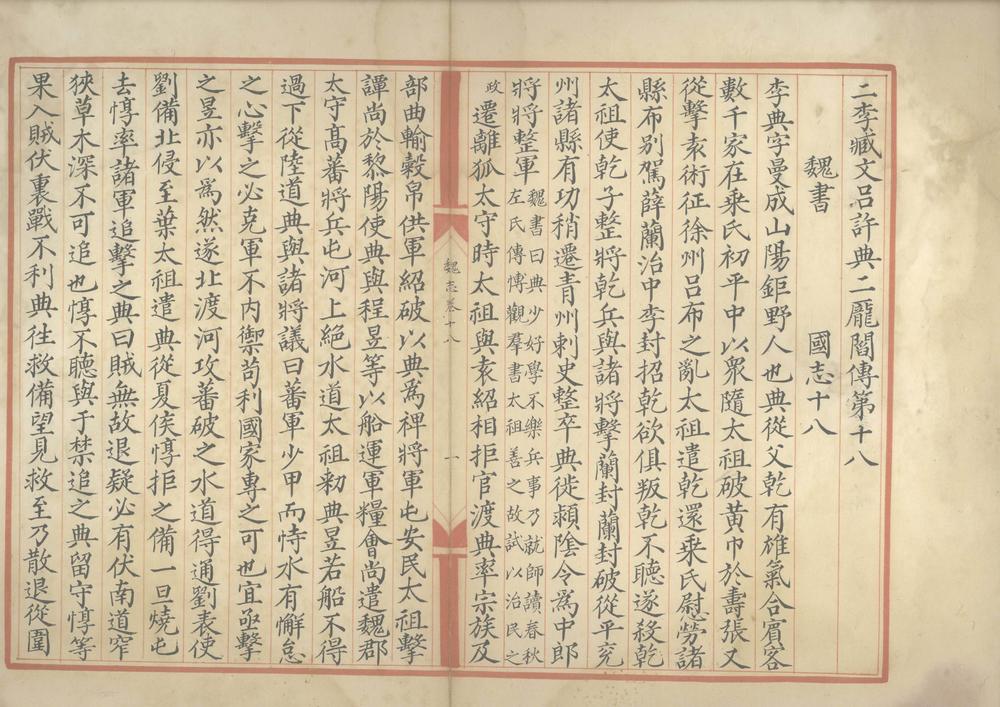 二李臧文呂許典二龐閻傳第十八
魏書　國志十八
李典字曼成山陽鉅野人也典從父乾有雄氣合賓客
數千家在乘氏初平中以衆隨太祖破黃巾於壽張又
從擊袁術征徐州呂布之亂太祖遣乾還乘氏慰勞諸
縣布別駕薛蘭治中李封招乾欲俱叛乾不聽遂殺乾
太祖使乾子整將乾兵與諸將擊蘭封蘭封破從平兖
州諸縣有功稍遷青州刺史整卒典徙頴陰令爲中郎
將將整軍
魏書曰典少好學不樂兵事乃就師讀春秋
左氏傳愽觀羣書太祖善之故試以治民之
政
遷離狐太守時太祖與袁紹相拒官渡典率宗族及
魏志卷十八
一
部曲輸糓帛供軍紹破以典爲禆將軍屯安民太祖擊
譚尚於黎陽使典與程昱等以船運軍糧會尚遣魏郡
太守高蕃將兵屯河上絕水道太祖勑典昱若船不得
過下從陸道典與諸將議曰蕃軍少甲而恃水有懈怠
之心擊之必克軍不內禦茍利國家專之可也宜亟擊
之昱亦以爲然遂北渡河攻蕃破之水道得通劉表使
劉備北侵至葉太祖遣典從夏侯惇拒之備一旦燒屯
去惇率諸軍追擊之典曰賊無故退疑必有伏南道窄
狹草木深不可追也惇不聽與于禁追之典留守惇等
果入賊伏裏戰不利典往救備望見救至乃散退從圍